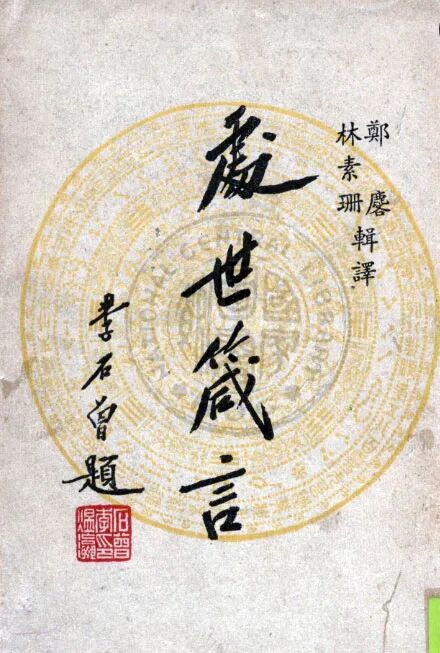 鄭麐
林素珊 輯譯
處世箴言
李石曾題
NATIONAL CENTRAL LIBRARY